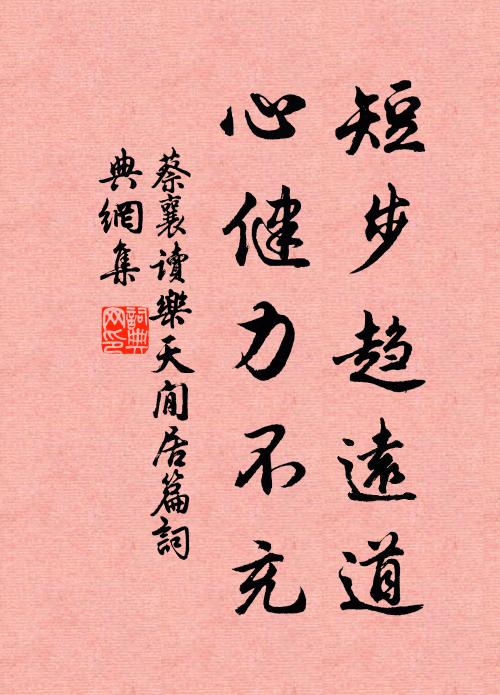 短步趋遠道
心健力不充
蔡襄讀樂天閒居篇詞
典網集
詞典网印